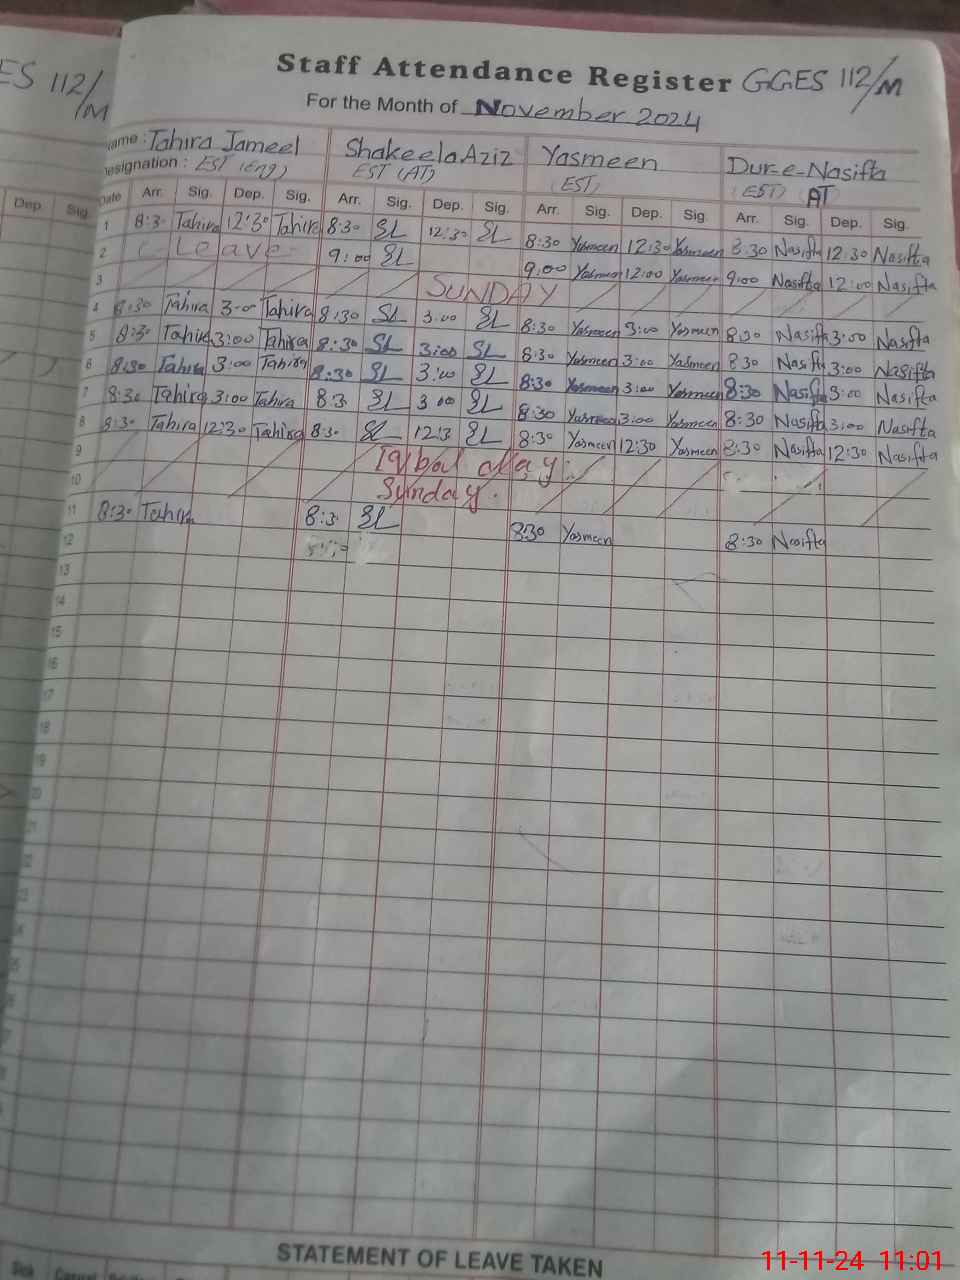 ES 112/M
Staff Attendance Register GGES 112/M
For the Month of November 2024
ame : Tahira Jameel Shakeela Aziz Yasmeen Dur-e-Nasifta
esignation : EST (Eng) EST (AT) (EST) (EST) (AT)
Dep. Sig. Date Arr. Sig. Dep. Sig. Arr. Sig. Dep. Sig. Arr. Sig. Dep. Sig. Arr. Sig. Dep. Sig.
1 8:30 Tahira 12:30 Tahira 8:30 SL 12:30 SL 8:30 Yasmeen 12:30 Yasmeen 8:30 Nasifta 12:30 Nasifta
2 - Leave - 9:00 SL 9:00 Yasmeen 12:00 Yasmeen 9:00 Nasifta 12:00 Nasifta
3 SUNDAY
4 8:30 Tahira 3:00 Tahira 8:30 SL 3:00 SL 8:30 Yasmeen 3:00 Yasmeen 8:30 Nasifta 3:00 Nasifta
5 8:30 Tahira 3:00 Tahira 8:30 SL 3:00 SL 8:30 Yasmeen 3:00 Yasmeen 8:30 Nasifta 3:00 Nasifta
6 8:30 Tahira 3:00 Tahira 8:30 SL 3:00 SL 8:30 Yasmeen 3:00 Yasmeen 8:30 Nasifta 3:00 Nasifta
7 8:30 Tahira 3:00 Tahira 8:3 SL 3:00 SL 8:30 Yasmeen 3:00 Yasmeen 8:30 Nasifta 3:00 Nasifta
8 8:30 Tahira 12:30 Tahira 8:30 SL 12:3 SL 8:30 Yasmeen 12:30 Yasmeen 8:30 Nasifta 12:30 Nasifta
9 Iqbal day
10 Sunday.
11 8:30 Tahira 8:3 SL 8:30 Yasmeen 8:30 Nasifta
12
13
14
15
16
17
18
19
20
21
22
23
24
25
STATEMENT OF LEAVE TAKEN
Sick Casual
11-11-24 11:01